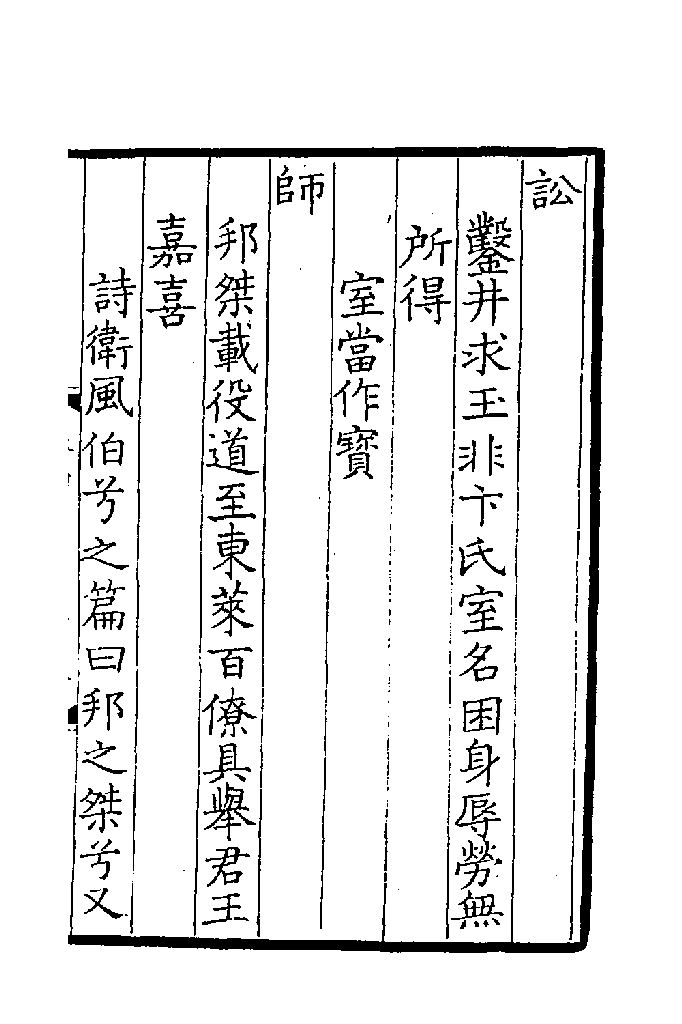 訟
鑿井求玉非卞氏室名困身辱勞無
所得
室當作寶
師
邦桀載役道至東萊百僚具舉君王
嘉喜
詩衛風伯兮之篇曰邦之桀兮又